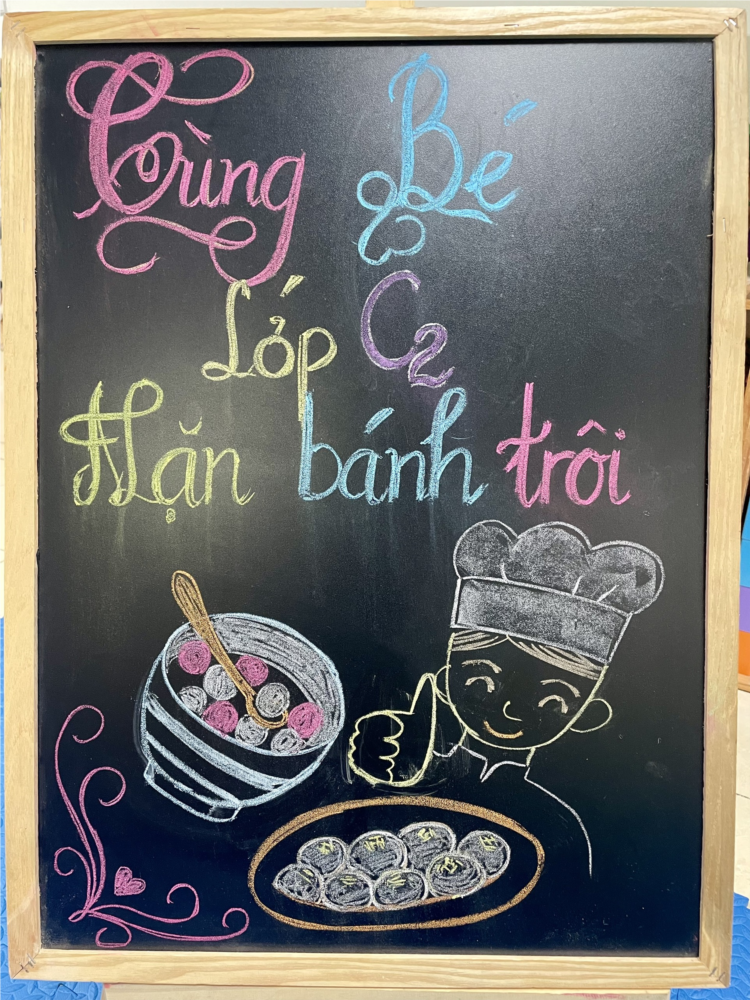 Cùng Bé
Lớp C2
Nặn bánh trôi